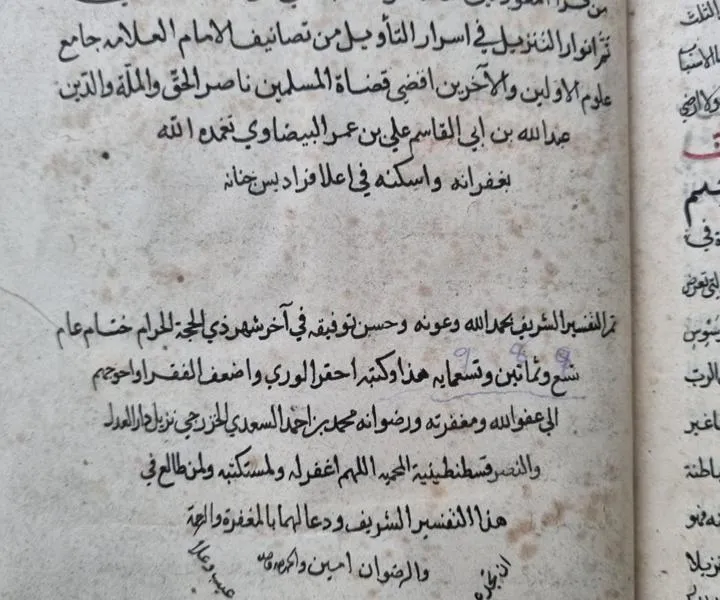 تم انوار التنزيل في اسرار التأويل من تصانيف الامام العلامه جامع
علوم الاولين والآخرين اقضى قضاة المسلمين ناصر الحق والملة والدين
عبدالله بن ابي القاسم علي بن عمر البيضاوي تغمده الله
بغفرانه واسكنه في اعلا فراديس جنانه
تم التفسير الشريف بحمد الله وعونه وحسن توفيقه في آخر شهر ذي الحجة الحرام ختام عام
تسع وثمانين وتسعمايه هذا وكتبه احقر الوري واضعف الفقرا واحوجهم
الى عفو الله ومغفرته ورضوانه محمد بن احمد السعدي الخزرجي نزيل دار العدل
والنصر قسطنطينية المحميه اللهم اغفر له ولمستكتبه ولمن طالع في
هذا التفسير الشريف ودعا لهما بالمغفرة والرحمة
والرضوان امين والحمد لله
ان تجد عيب وعلا
الثلث
ولا ارضي
في
الرب
باطنة
نزيلا